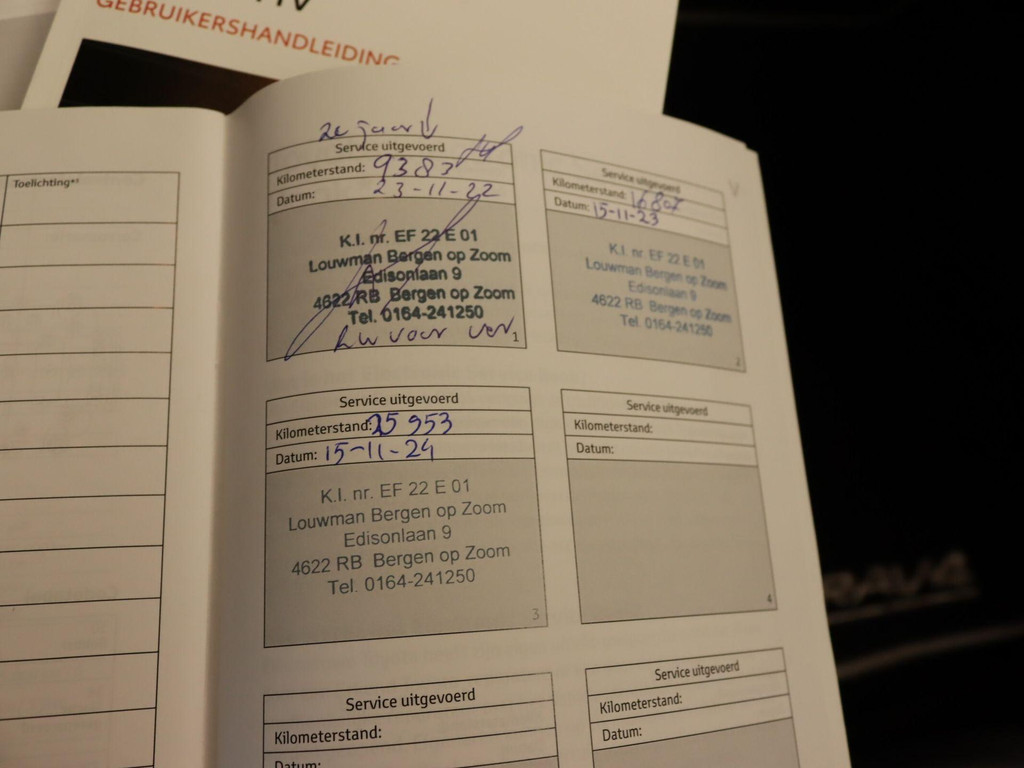 GEBRUIKERSHANDLEIDING
Toelichting*¹
2e jaar
Service uitgevoerd
Kilometerstand: 9383
Datum: 23-11-22
K.I. nr. EF 22 E 01
Louwman Bergen op Zoom
Edisonlaan 9
4622 RB Bergen op Zoom
Tel. 0164-241250
voor
1
Service uitgevoerd
Kilometerstand: 16807
Datum: 15-11-23
K.I. nr. EF 22 E 01
Louwman Bergen op Zoom
Edisonlaan 9
4622 RB Bergen op Zoom
Tel. 0164-241250
2
Service uitgevoerd
Kilometerstand: 25953
Datum: 15-11-24
K.I. nr. EF 22 E 01
Louwman Bergen op Zoom
Edisonlaan 9
4622 RB Bergen op Zoom
Tel. 0164-241250
3
Service uitgevoerd
Kilometerstand:
Datum:
4
Service uitgevoerd
Kilometerstand:
Datum:
Service uitgevoerd
Kilometerstand:
Datum:
RAV4